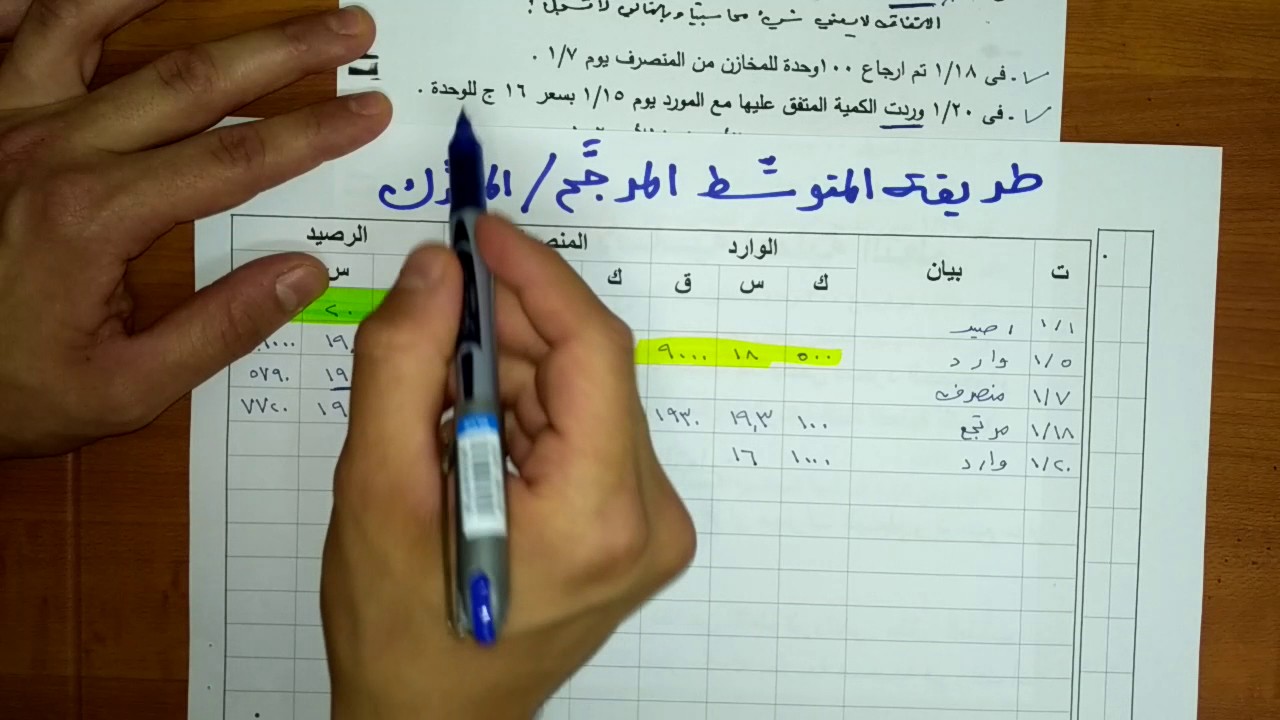 الاتفاق لا يعني شيء محاسبيًا وبالتالي لا تسجل !
- فى ١/١٨ تم ارجاع ١٠٠وحدة للمخازن من المنصرف يوم ١/٧ .
- فى ١/٢٠ وردت الكمية المتفق عليها مع المورد يوم ١/١٥ بسعر ١٦ ج للوحدة .
طريقة المتوسّط المرجَّح /
ت بيان الوارد الرصيد
ك س ق ك س
١/١ رصيد ٢٠
١/٥ وارد ٥٠٠ ١٨ ٩٠٠٠
١/٧ منصرف ١٩ ٥٧٩٠
١/١٨ مرتجع ١٠٠ ١٩,٣ ١٩٣٠ ١٩ ٧٧٢٠
١/٢٠ وارد ١٠٠٠ ١٦